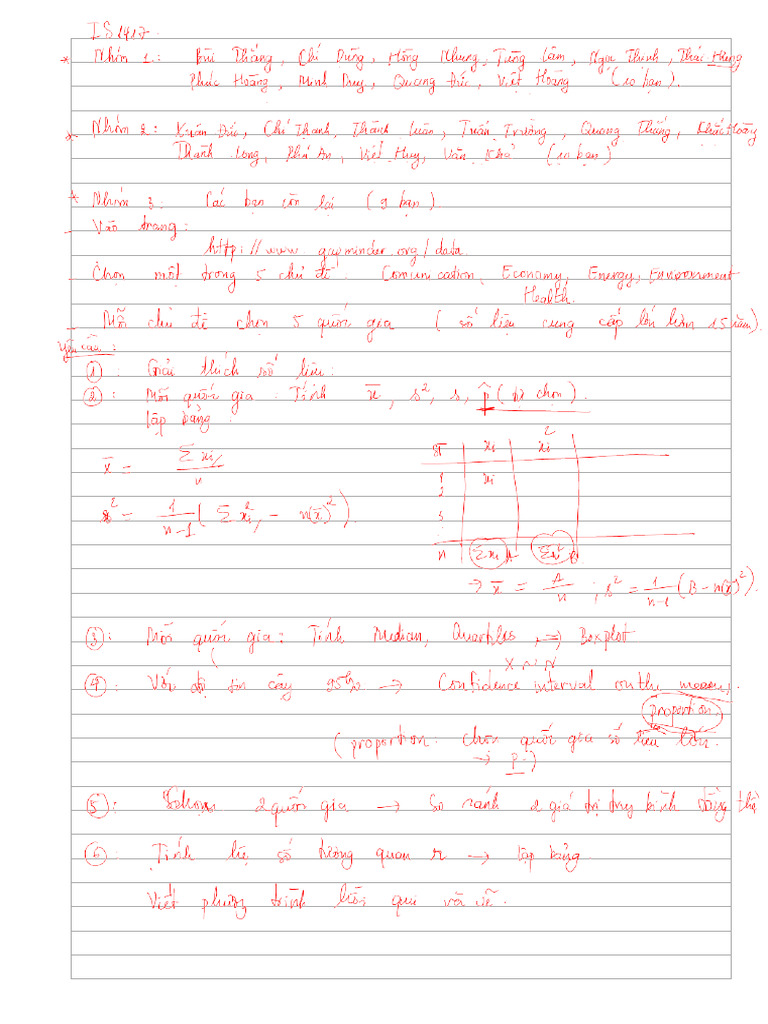 IS1417.
* Nhóm 1: Bùi Thắng, Chí Dũng, Hồng Nhung, Tùng Lâm, Ngọc Thịnh, Thái Hưng
Phúc Hoàng, Minh Duy, Quang Đức, Viết Hoàng (10 bạn).
* Nhóm 2: Xuân Đức, Chí Thanh, Thành Luân, Tuấn Trường, Quang Thắng, Khắc Hoàng
Thành Long, Phú An, Viết Huy, Văn (10 bạn)
* Nhóm 3: Các bạn còn lại (9 bạn)
- Vào trang:
http://www gapminder.org/data.
- Chọn một trong 5 chủ đề: Comunication, Economy, Energy, Environement
Health.
- Mỗi chủ đề chọn 5 quốc gia (số liệu cung cấp lớn hơn 15 năm).
Yêu cầu:
①: Giải thích số liệu:
②: Mỗi quốc gia: Tính x̄, s², s, p̂ (tự chọn).
lập bảng.
x̄ = Σxi / n
s² = 1/(n-1) (Σxi² - n(x̄)²).
ST xi xi²
1 xi
2
3
n Σxi A Σxi² B
→ x̄ = A/n ; s² = 1/(n-1) (B - n(x̄)²)
③: Mỗi quốc gia: Tính Median, Quartiles, => Boxplot
④: Với độ tin cậy 95% → Confidence interval on the mean,
proportion.
(proportion: chọn quốc gia số liệu lớn.
→ p.)
⑤: Chọn 2 quốc gia → So sánh 2 giá trị trung bình tổng thể
⑥: Tính hệ số tương quan r → lập bảng.
Viết phương trình hồi qui và vẽ.